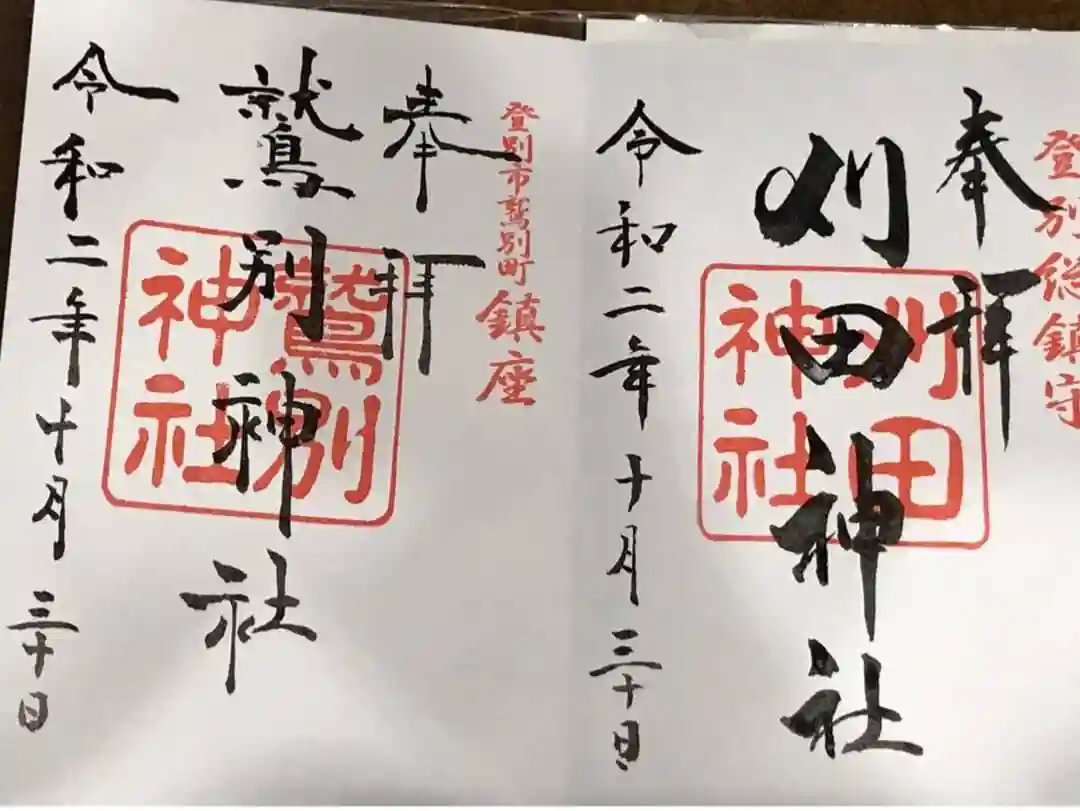 登別総鎮守
奉拝
刈田神社
刈田神社
令和二年十月三十日
登別市鷲別町鎮座
奉拝
鷲別神社
鷲別神社
令和二年十月三十日